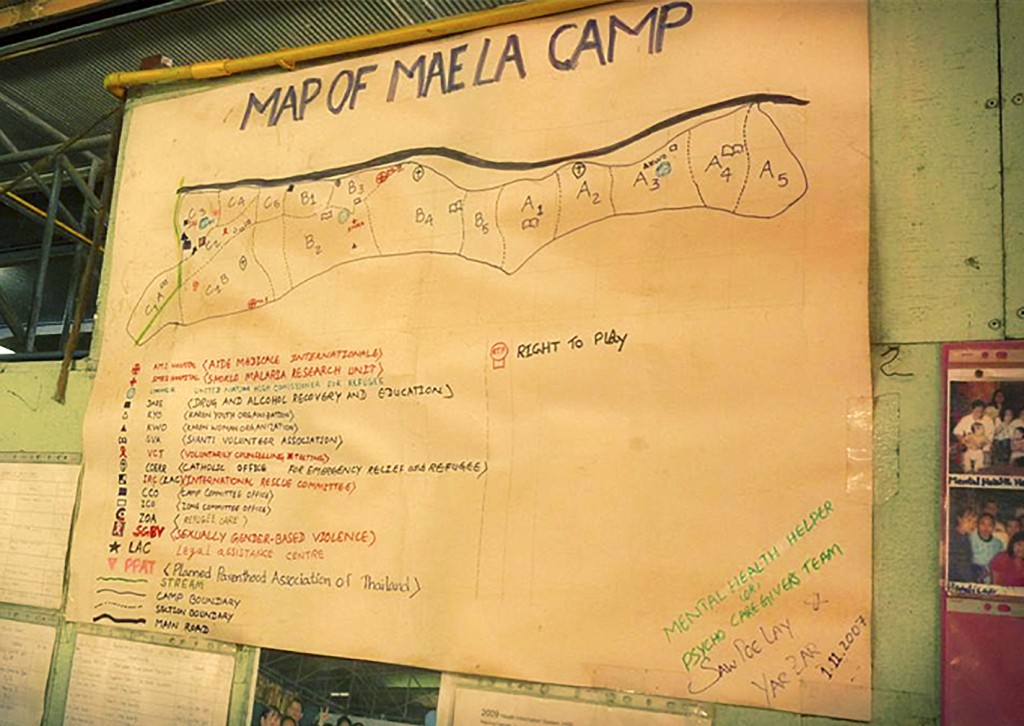 MAP OF MAE LA CAMP
C3
C4
C6
B1
B3
B4
B5
A1
A2
KWO
A3
A4
A5
C2
B2
C1B
C1A
AMI HOSPITAL (AIDE MEDICALE INTERNATIONALE)
SMRU HOSPITAL (SHOKLO MALARIA RESEARCH UNIT)
UNITED NATION HIGH COMISSIONER FOR REFUGEE
DARE (DRUG AND ALCOHOL RECOVERY AND EDUCATION)
KYO (KAREN YOUTH ORGANIZATION)
KWO (KAREN WOMAN ORGANIZATION)
SVA (SHANTI VOLUNTEER ASSOCIATION)
VCT (VOLUNTARILY COUNSELLING & TESTING)
COERR (CATHOLIC OFFICE FOR EMERGENCY RELIEF and REFUGEE)
IRC (IRC) (INTERNATIONAL RESCUE COMMITTEE)
CCO (CAMP COMMITTEE OFFICE)
ZCO (ZONE COMMITTEE OFFICE)
ZOA (REFUGEE CARE)
SGBV (SEXUALLY GENDER-BASED VIOLENCE)
LAC Legal assistance centre
PPAT (Planned Parenthood Association of Thailand)
STREAM
CAMP BOUNDARY
SECTION BOUNDARY
MAIN ROAD
RTP RIGHT TO PLAY
MENTAL HEALTH HELPER
(OR)
PSYCHO CARE GIVERS TEAM
SAW POE LAY
YAR ZAR
1.11.2007
2
Mental Health
2009